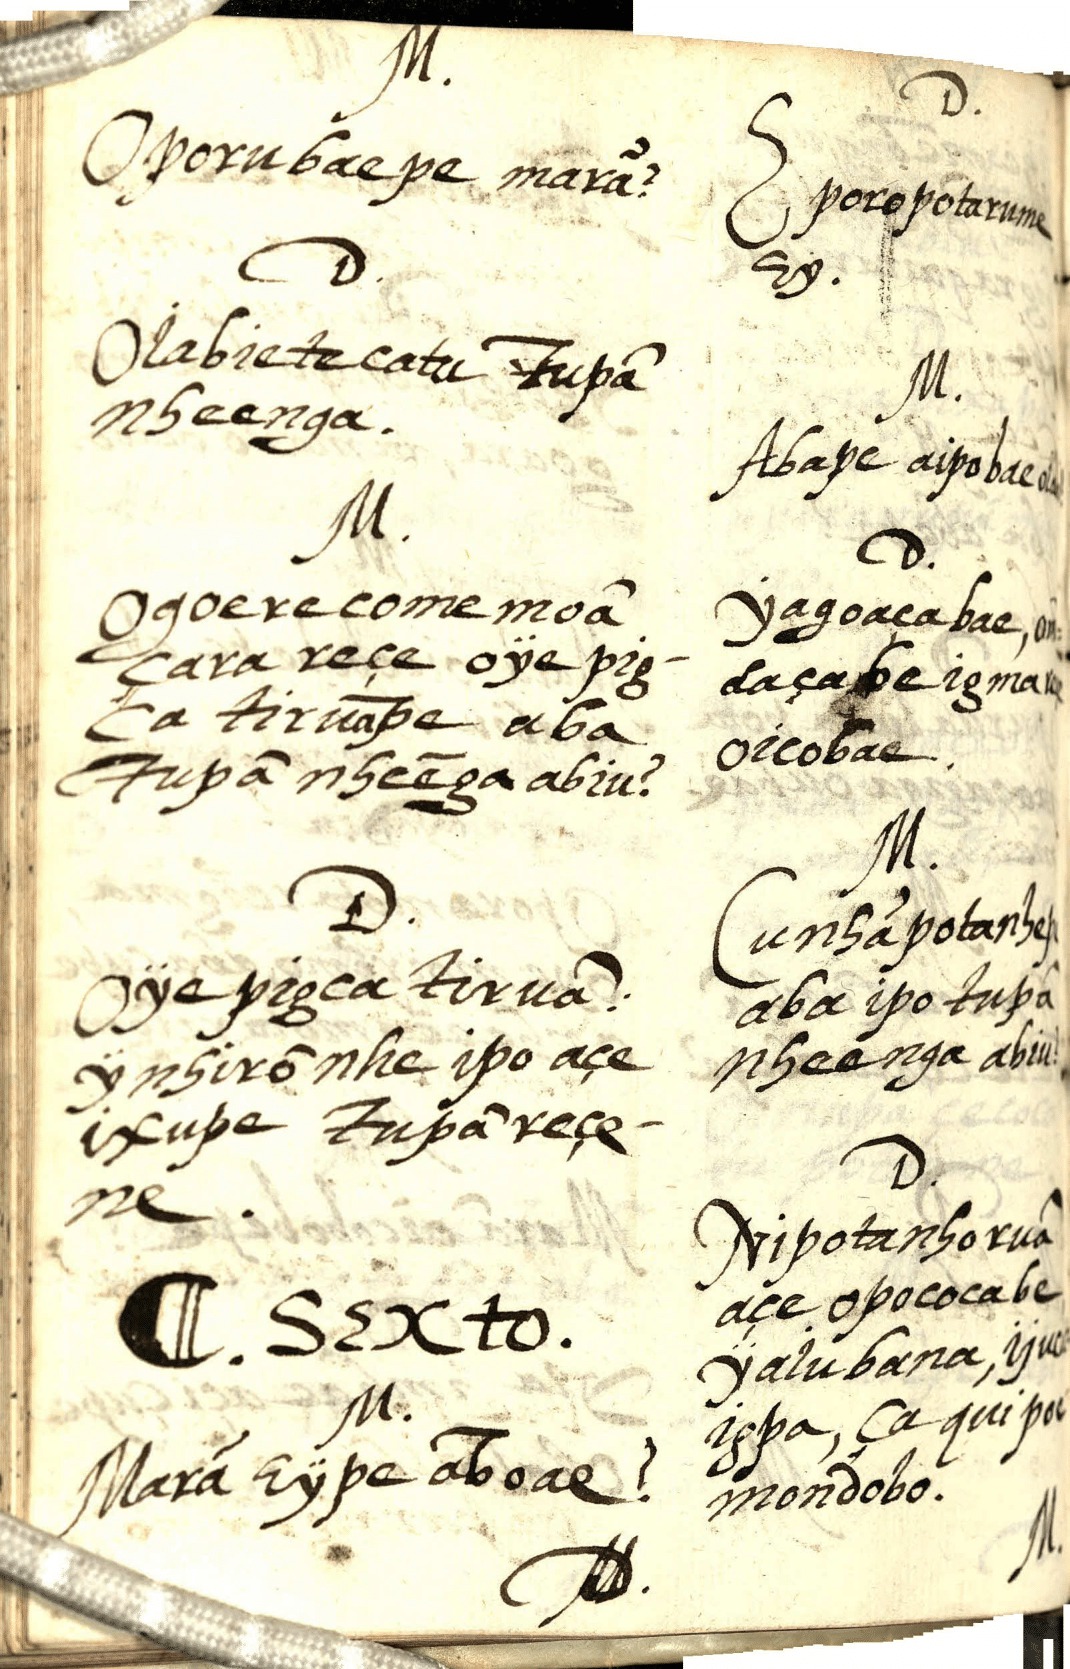 M.
Oporubaepe marã?
D.
Olabietecatu Tupã
nheenga.
M.
Ogoerecomemoã
çara reçe oÿe pig-
ca tiruãpe aba
Tupã nheẽga abiu?
D.
Oÿe pigca tiruã.
ÿnhirõ nhe ipo açe
ixupe Tupã reçe-
ne.
¶. SExto.
M.
Marã Eÿpe aboae?
D.
D.
Eporopotarume
Ey.
M.
Abape aipobae
D.
Ÿagoaçabae,
daçabe igma
oicobae.
M.
Cunhã potanhe
aba ipo tupã
nheenga abiu?
D.
Nipotanhoruã
açe opococabe
ÿalubana,
igpa, ça qui
mondobo.
M.